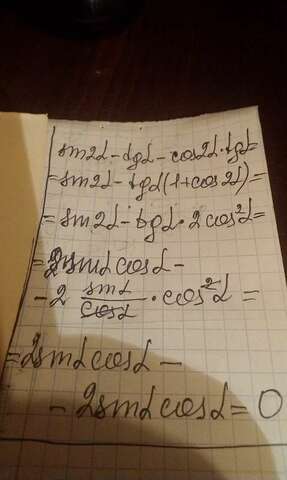 sin2α - tgα - cos2α·tgα=
=sin2α - tgα(1+cos2α)=
=sin2α - tgα·2cos²α=
=2sinαcosα -
-2 sinα/cosα · cos²α =
=2sinαcosα -
- 2sinαcosα = 0